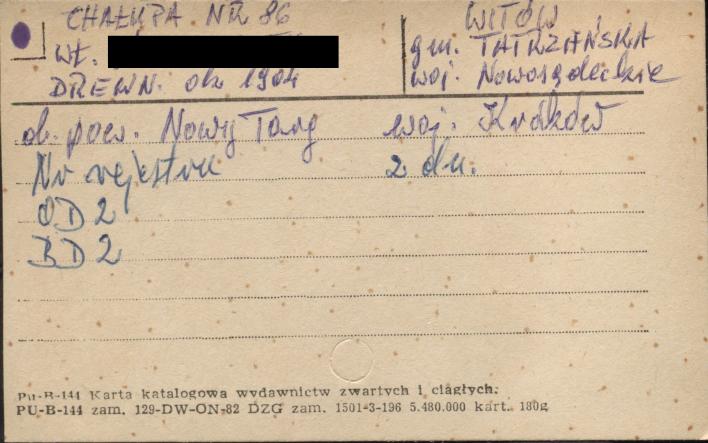 CHAŁUPA NR 86
WITÓW
wł.
gm. TATRZAŃSKA
DREWN. ok. 1904
woj. Nowosądeckie
ob. pow. Nowy Targ woj. Kraków
Nr rejestru 2 dn.
OD 2
BD 2
PU-B-144 Karta katalogowa wydawnictw zwartych i ciągłych.
PU-B-144 zam. 129-DW-ON-82 DZG zam. 1501-3-196 5.480.000 kart. 180g